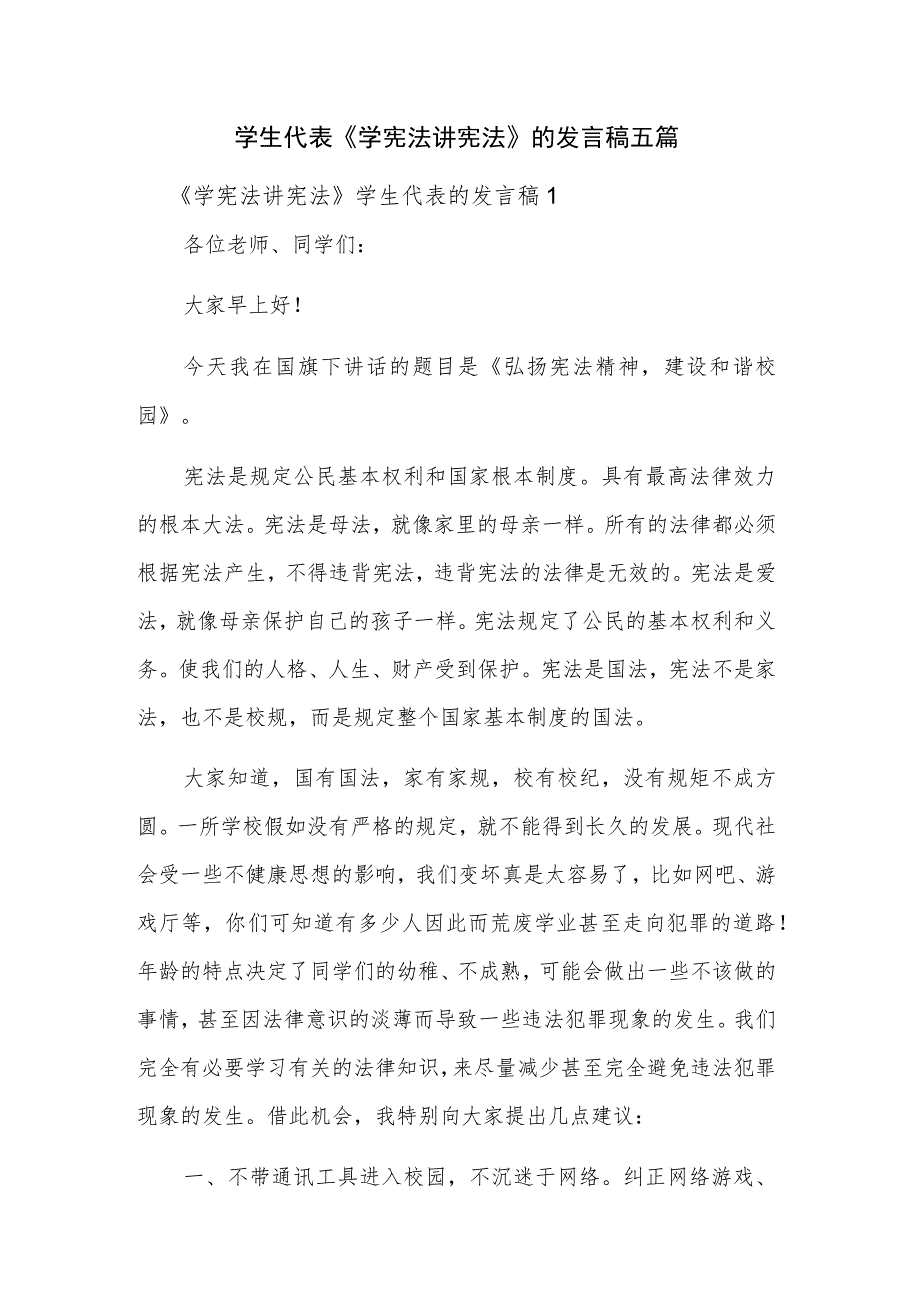 学生代表《学宪法讲宪法》的发言稿五篇
《学宪法讲宪法》学生代表的发言稿1
各位老师、同学们：
大家早上好！
今天我在国旗下讲话的题目是《弘扬宪法精神，建设和谐校
园》。
宪法是规定公民基本权利和国家根本制度。具有最高法律效力
的根本大法。宪法是母法，就像家里的母亲一样。所有的法律都必须
根据宪法产生，不得违背宪法，违背宪法的法律是无效的。宪法是爱
法，就像母亲保护自己的孩子一样。宪法规定了公民的基本权利和义
务。使我们的人格、人生、财产受到保护。宪法是国法，宪法不是家
法，也不是校规，而是规定整个国家基本制度的国法。
大家知道，国有国法，家有家规，校有校纪，没有规矩不成方
圆。一所学校假如没有严格的规定，就不能得到长久的发展。现代社
会受一些不健康思想的影响，我们变坏真是太容易了，比如网吧、游
戏厅等，你们可知道有多少人因此而荒废学业甚至走向犯罪的道路！
年龄的特点决定了同学们的幼稚、不成熟，可能会做出一些不该做的
事情，甚至因法律意识的淡薄而导致一些违法犯罪现象的发生。我们
完全有必要学习有关的法律知识，来尽量减少甚至完全避免违法犯罪
现象的发生。借此机会，我特别向大家提出几点建议：
一、不带通讯工具进入校园，不沉迷于网络。纠正网络游戏、